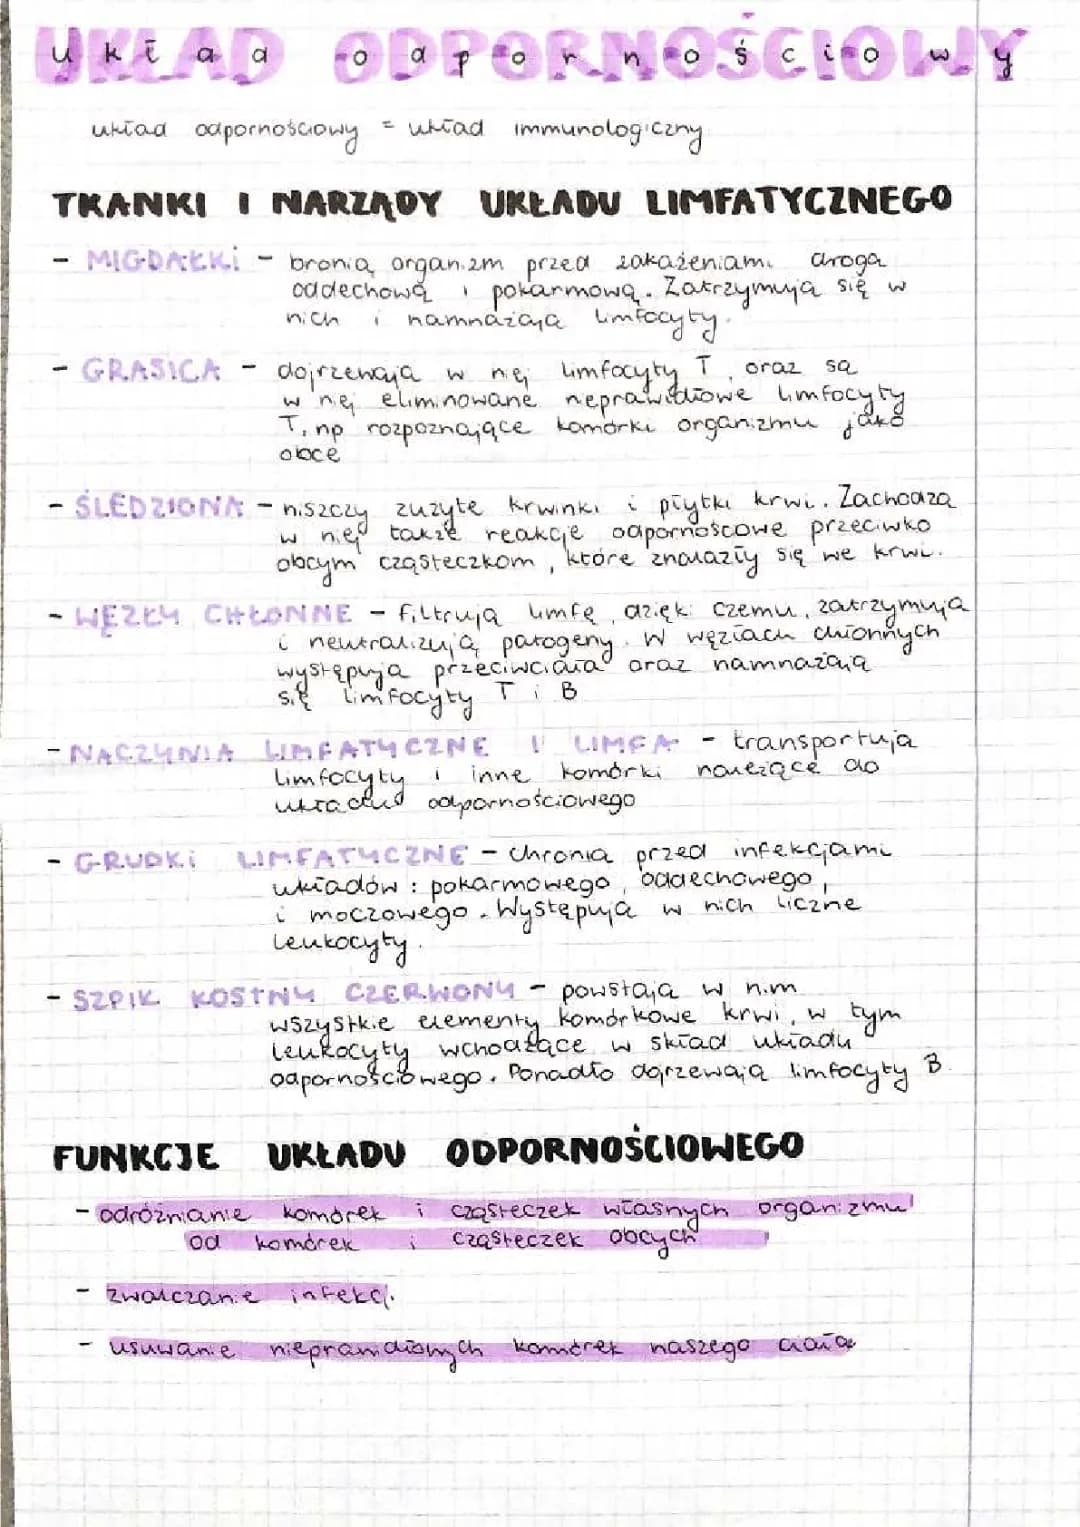 UKŁAD ODPORNOŚCIOWY
układ odpornościowy
układ odpornościowy = układ immunologiczny
TKANKI I NARZĄDY UKŁADU LIMFATYCZNEGO
- MIGDAŁKI - bronią organizm przed zakażeniami drogą
oddechową i pokarmową. Zatrzymują się w
nich i namnażają limfocyty.
- GRASICA - dojrzewają w niej limfocyty T, oraz są
w niej eliminowane nieprawidłowe limfocyty
T, np rozpoznające komórki organizmu jako
obce
- ŚLEDZIONA - niszczy zużyte krwinki i płytki krwi. Zachodzą
w niej także reakcje odpornościowe przeciwko
obcym cząsteczkom, które znalazły się we krwi.
- WĘZŁY CHŁONNE - filtrują limfę, dzięki czemu, zatrzymują
i neutralizują patogeny. W węzłach chłonnych
występują przeciwciała oraz namnażają
się limfocyty T i B
- NACZYNIA LIMFATYCZNE I LIMFA - transportują
limfocyty i inne komórki należące do
układu odpornościowego
- GRUDKI LIMFATYCZNE - chronią przed infekcjami
układów: pokarmowego, oddechowego,
i moczowego. Występują w nich liczne
leukocyty.
- SZPIK KOSTNY CZERWONY - powstają w nim
wszystkie elementy komórkowe krwi, w tym
leukocyty wchodzące w skład układu
odpornościowego. Ponadto dojrzewają limfocyty B.
FUNKCJE UKŁADU ODPORNOŚCIOWEGO
- odróżnianie komórek i cząsteczek własnych organizmu
od komórek i cząsteczek obcych
- zwalczanie infekcji
- usuwanie nieprawidłowych komórek naszego ciała